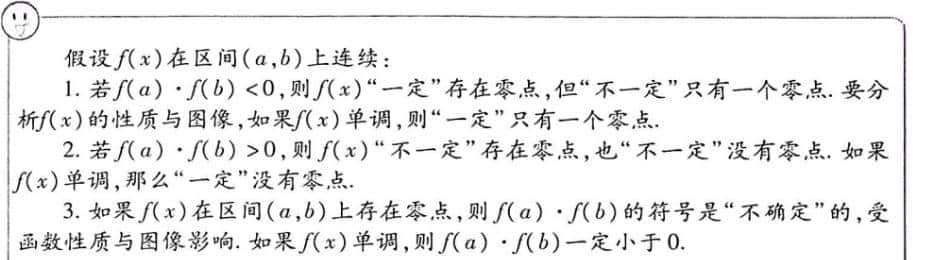 假设 f(x) 在区间(a,b)上连续:
1. 若f(a)·f(b)<0,则f(x)“一定”存在零点,但“不一定”只有一个零点. 要分
析f(x)的性质与图像,如果f(x)单调,则“一定”只有一个零点.
2. 若f(a)·f(b)>0,则f(x)“不一定”存在零点,也“不一定”没有零点. 如果
f(x)单调,那么“一定”没有零点.
3. 如果f(x)在区间(a,b)上存在零点,则f(a)·f(b)的符号是“不确定”的,受
函数性质与图像影响. 如果f(x)单调,则f(a)·f(b)一定小于0.